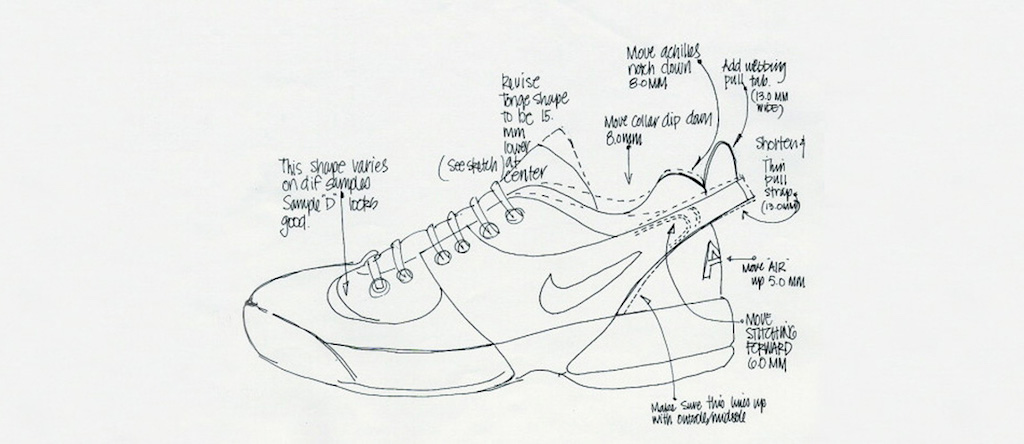 Move achilles
notch down
8.0MM
Add webbing
pull tab.
(13.0 MM
WIDE)
Revise
Tonge shape
to be 15.
mm
lower
at
center
(See sketch)
Move Collar dip down
8.0mm
Shorten &
Thin
pull
strap
(13.0mm)
This shape varies
on dif samples
Sample "D" looks
good.
A
Move "AIR"
up 5.0 MM
MOVE
STITCHING
FORWARD
6.0 MM
Make sure this lines up
with outside/midsole